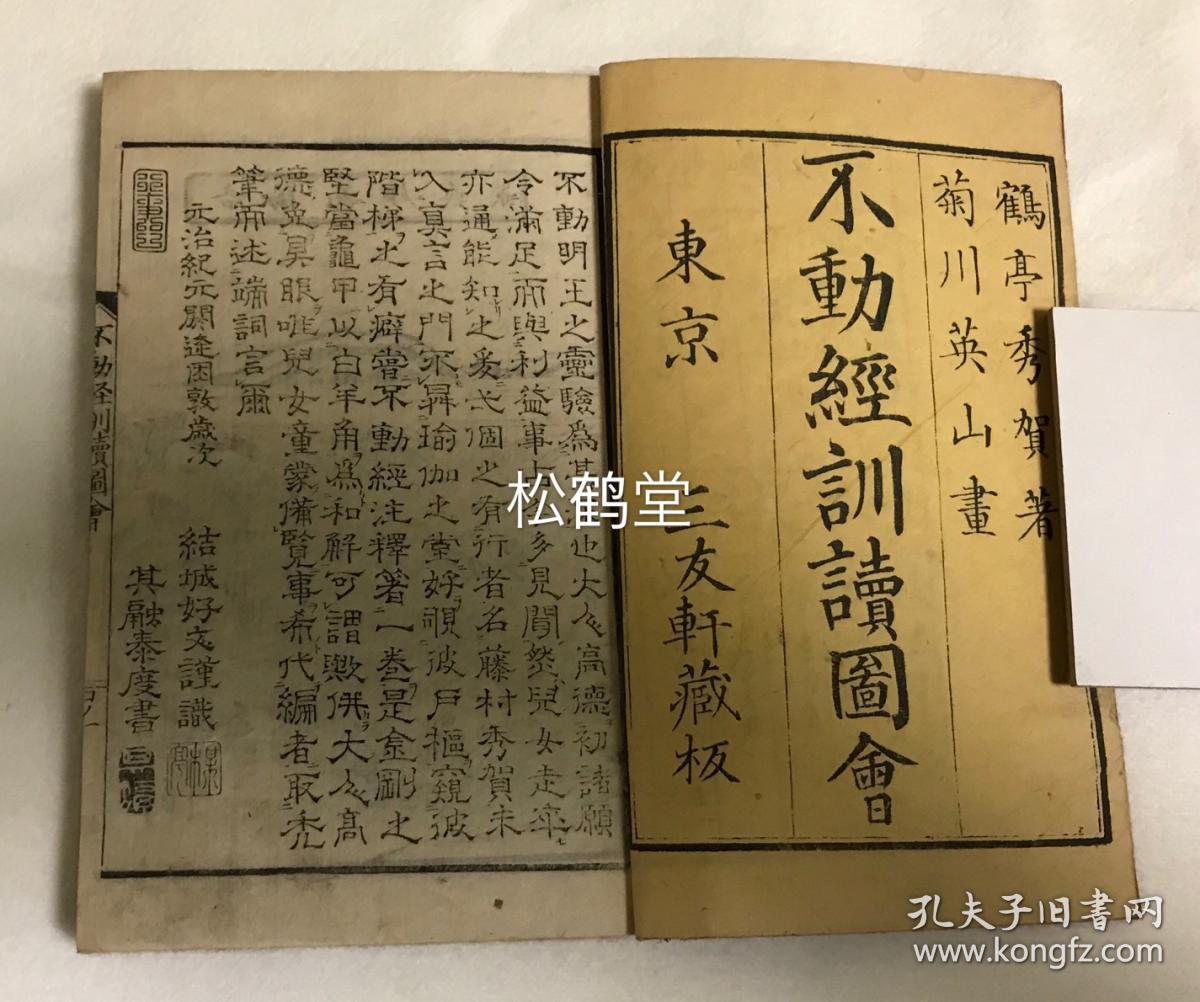 鶴亭秀賀著
菊川英山畫
不動經訓讀圖會
東京 三友軒藏板
不動明王之靈驗為其
也大
高德初諸願
令滿足而與利益事
多見聞
兒女走卒
亦通能知之爰
個之有行者名藤村秀賀未
入真言之門不昇瑜伽之堂好覗彼戶樞窺彼
階梯之有癖嘗不動經注釋著一卷是金剛之
堅當龜甲以白羊角為和解可謂歟併大
高
德
具眼唯兒女童蒙備覽事希代編者取禿
筆而述端詞言爾
元治紀元閼逢困敦歲次
結城好文謹識
其融泰度書
不動經訓讀圖會
松鹤堂
孔夫子旧书网
www.kongfz.com